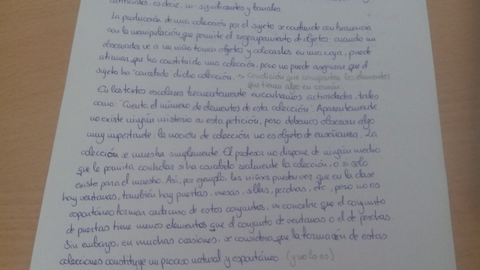 arbitrarios, es decir, in-significantes y banales.
La producción de una colección por el sujeto se confunde con frecuencia
con la manipulación que permite el agrupamiento de objetos, cuando un
observador ve a un niño tomar objetos y colocarlos en una caja, puede
afirmar que ha constituido una colección, pero no puede asegurar que el
sujeto ha "concebido" dicha colección. → Condición que comparten los elementos
que tienen algo en común
En los textos escolares frecuentemente encontramos actividades, tales
como: "Cuenta el número de elementos de esta colección". Aparentemente
no existe ningún misterio en esta petición, pero debemos observar algo
muy importante: la noción de colección no es objeto de enseñanza. La
colección se muestra simplemente. El profesor no dispone de ningún medio
que le permita controlar si ha concebido realmente la colección, o si solo
existe para el maestro. Así, por ejemplo, los niños pueden ver que en la clase
hay ventanas, también hay puertas, mesas, sillas, perchas, etc., pero no es
espontáneo formar conjuntos de estos conjuntos, ni concebir que el conjunto
de puertas tiene menos elementos que el conjunto de ventanas o el de perchas.
Sin embargo, en muchas ocasiones, se considera que la formación de estas
colecciones constituye un proceso natural y espontáneo. (y no lo es)